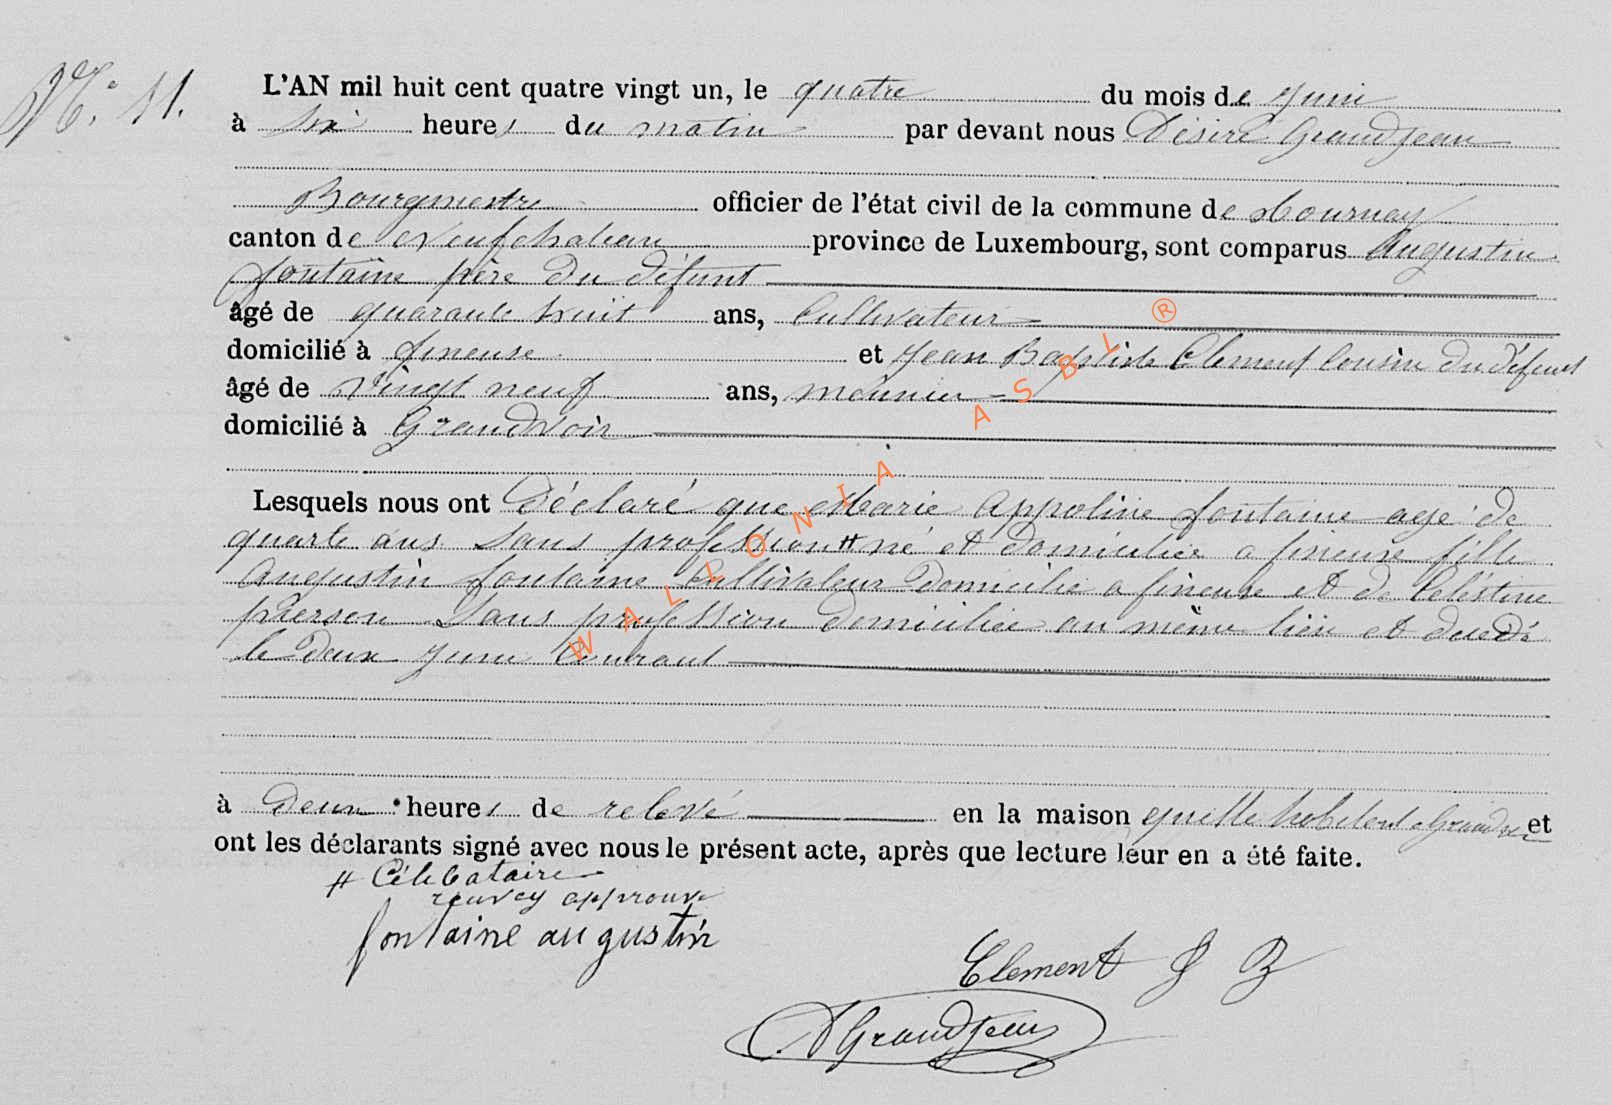 N° 11.
L'AN mil huit cent quatre vingt un, le quatre du mois de Juin
à six heures du matin par devant nous Désiré Grandjean
Bourgmestre officier de l'état civil de la commune de Tournay
canton de Neufchateau province de Luxembourg, sont comparus Augustin
fontaine père du défunt
âgé de quarante huit ans, Cultivateur
domicilié à fineuse et Jean Baptiste Clement Cousin du défunt
âgé de vingt neuf ans, meunier
domicilié à Grandvoir
Lesquels nous ont Déclaré que Marie Appoline fontaine age de
quarte ans sans profession # né et domicilier a fineuse fille
Augustin fontaine Cultivateur Domicilié a fineuse et de Celéstine
pierson sans profession domiciliée au même lieu et décedé
le deux Juin Courant
à deux heures de relevé en la maison qu'elle habitent a Grandvoir et
ont les déclarants signé avec nous le présent acte, après que lecture leur en a été faite.
# Célibataire
renvoy approuve
fontaine augustin
Clement J B
D Grandjean
WALLONIA ASBL ®